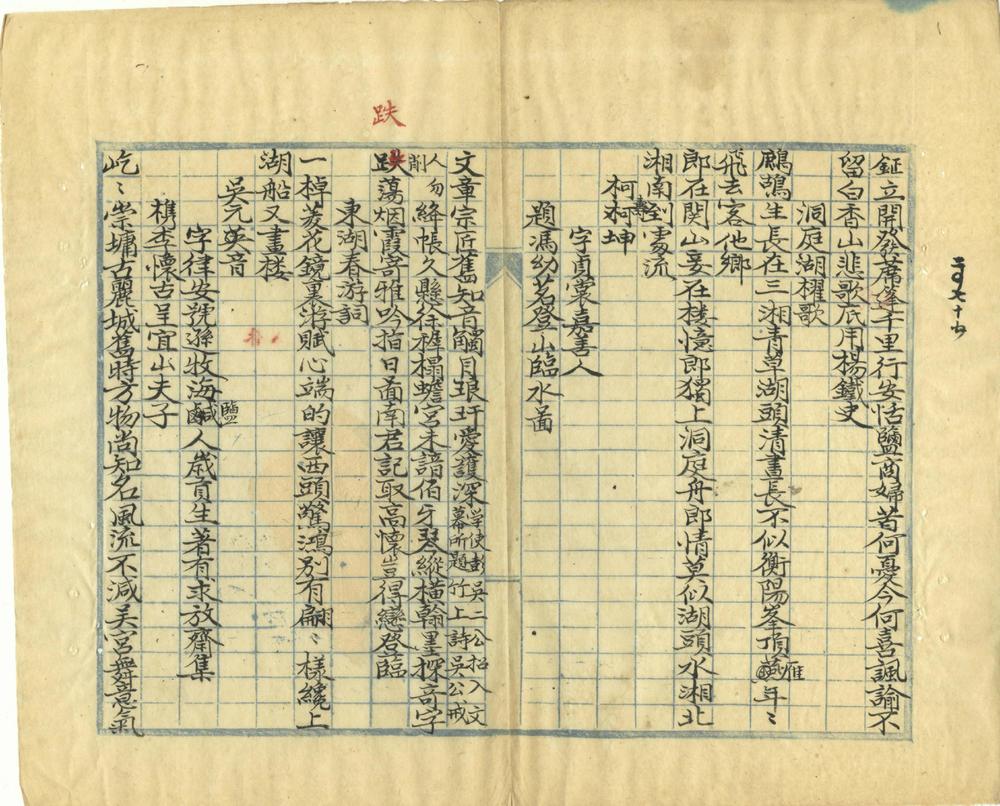 鉦立開發席篷千里行安恬鹽商婦昔何憂今何喜諷諭不
留白香山悲歌底用楊鐵史
洞庭湖櫂歌
鷓鴣生長在三湘青草湖頭清晝長不似衡陽峯頂雁年〻
飛去客他鄉
郎在関山妾在楼憶郎獨上洞庭舟郎情莫似湖頭水湘北
湘南到處流
柯萬坤
字貞棠嘉善人
題馮幼茗登山臨水啚
文章宗匠舊知音觸目琅玕愛護深學使彭吳二公招入文
幕所題竹上詩吳公戒
人勿
削絳帳久懸徐穉榻蟾宮未諳伯牙琴縱橫翰墨探奇字
跌蕩烟霞寄雅吟指日啚南君記取高懷豈得戀登臨
東湖春游詞
一棹菱花鏡裏游賦心端的讓西頭驚鴻別有翩〻樣纔上
湖船又畫楼
吳元英音
字律安號孫牧海鹽人歲貢生著有求放齋集
檇李懷古呈宜山夫子
屹〻崇墉古麗城舊時方物尚知名風流不減吴宮舞意氣
跌